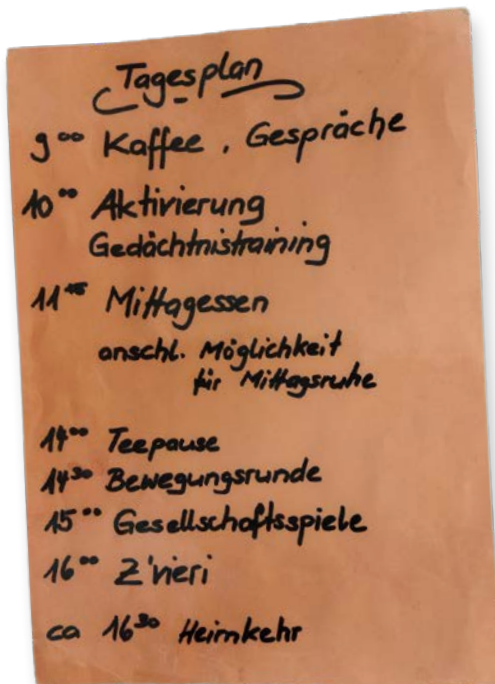 Tagesplan
9⁰⁰ Kaffee, Gespräche
10⁰⁰ Aktivierung
Gedächtnistraining
11⁴⁵ Mittagessen
anschl. Möglichkeit
für Mittagsruhe
14⁰⁰ Teepause
14³⁰ Bewegungsrunde
15⁰⁰ Gesellschaftsspiele
16⁰⁰ Z'vieri
ca 16³⁰ Heimkehr